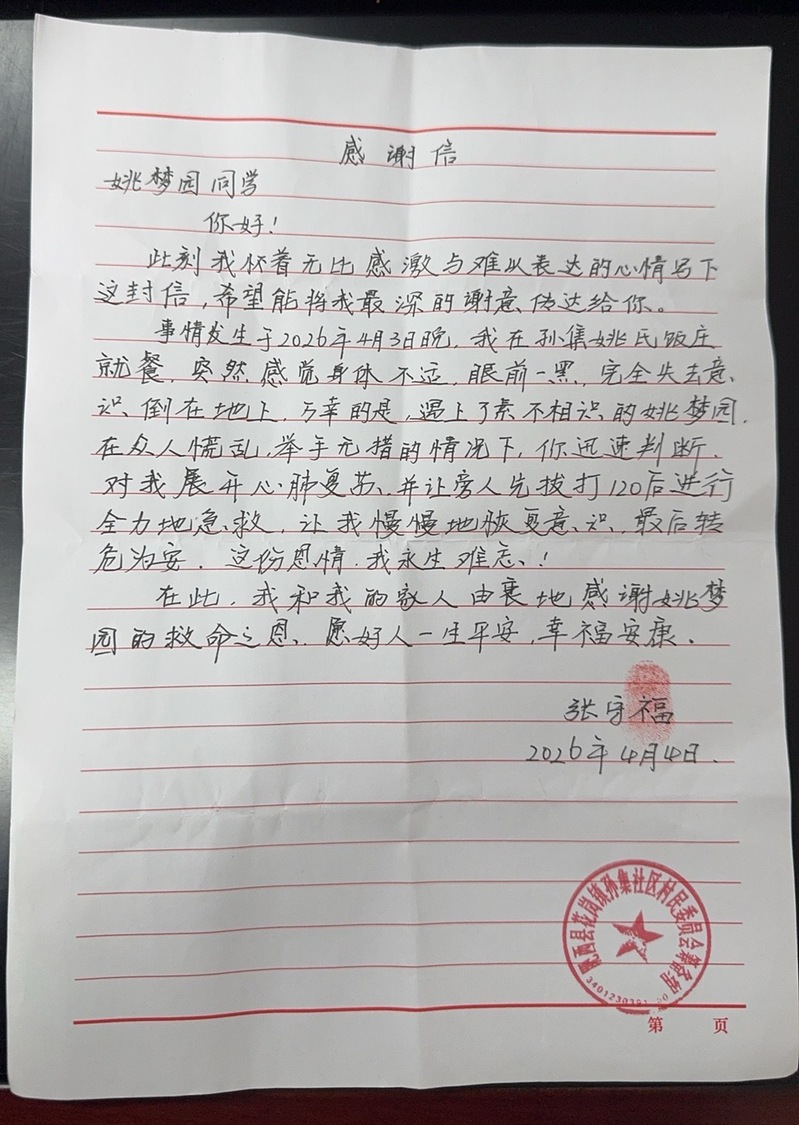 感谢信
姚梦园同学
你好！
此刻我怀着无比感激与难以表达的心情写下
这封信，希望能将我最深的谢意传达给你。
事情发生于2026年4月3日晚，我在孙集姚氏饭庄
就餐，突然感觉身体不适，眼前一黑，完全失去意
识倒在地上，万幸的是，遇上了素不相识的姚梦园，
在众人慌乱，举手无措的情况下，你迅速判断、
对我展开心肺复苏、并让旁人先拔打120后进行
全力地急救，让我慢慢地恢复意识，最后转
危为安．这份恩情，我永生难忘、！
在此，我和我的家人由衷地感谢姚梦
园的救命之恩、愿好人一生平安，幸福安康。
张守福
2026年4月4日．
肥西县花岗镇孙集社区村民委员会
第 页